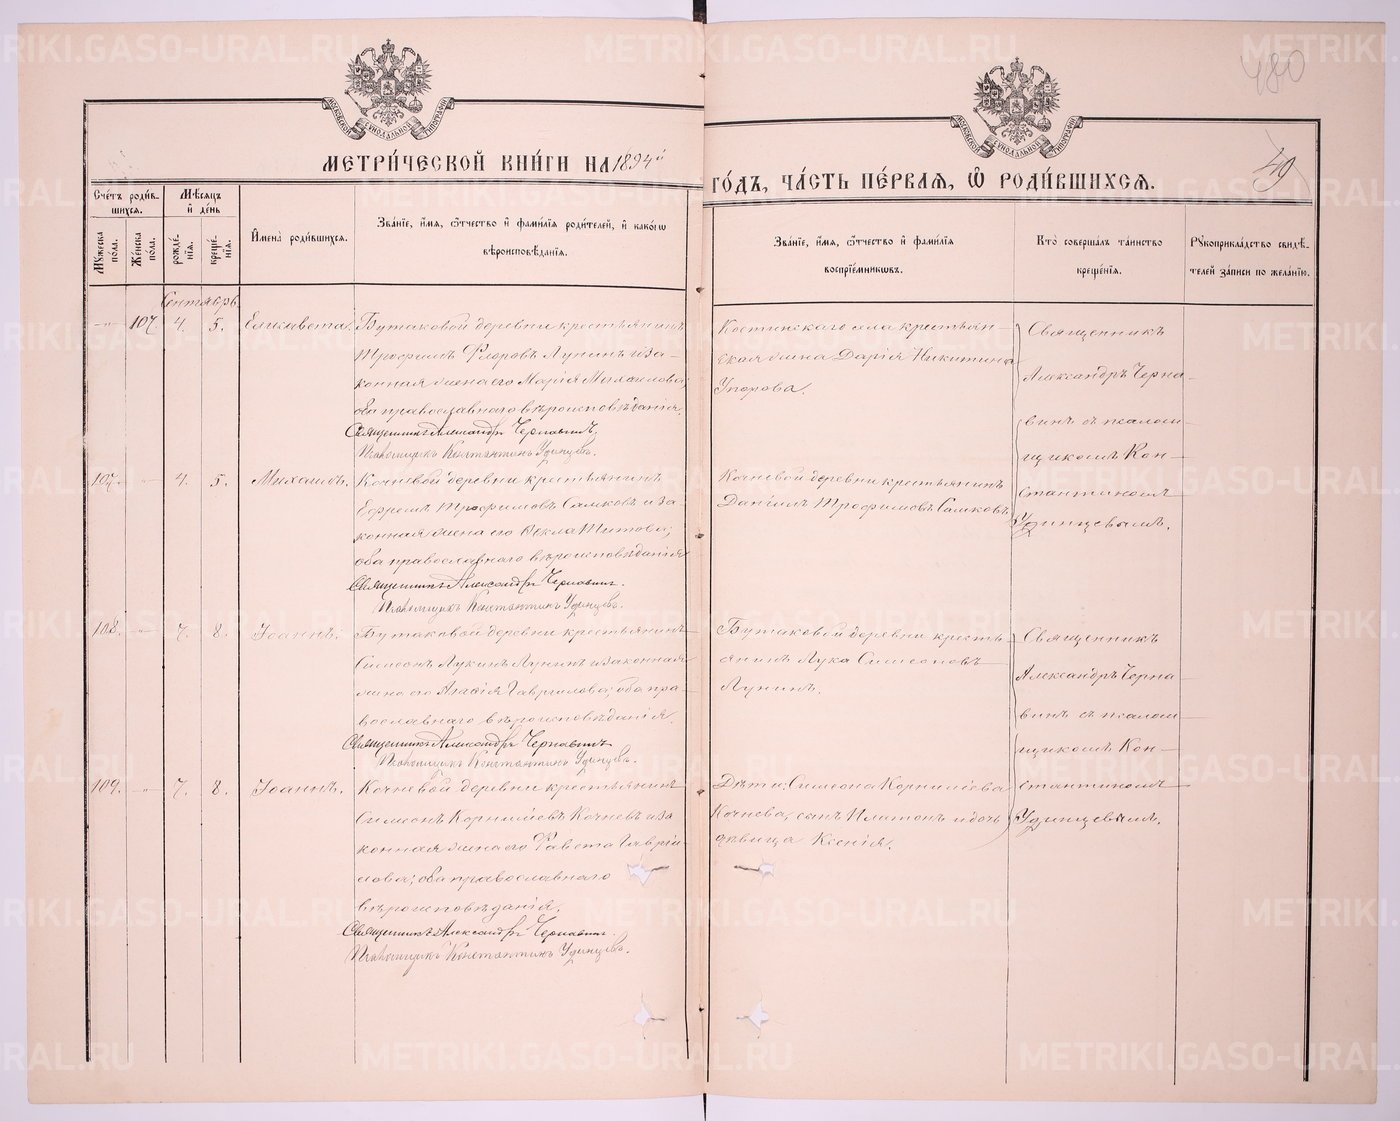 480
МЕТРИ́ЧЕСКОЙ КНИ́ГИ НА 1894й
ГО́ДЪ, ЧА́СТЬ ПЕ́РВАЯ, Ѽ РОДИ́ВШИХСЯ.
49
Сче́тъ роди́в-
шихся.
Мѣ́сяцъ
и҆ де́нь
Му́жеска
по́ла.
Же́нска
по́ла.
рожде́-
нїѧ.
креще́-
нїѧ.
И҆мена̀ роди́вшихся.
Зва́нїе, и҆́мя, ѻ҆́тчество и҆ фами́лїя роди́телей, и҆ како́гѡ
вѣроисповѣ́данїя.
Зва́нїе, и҆́мя, ѻ҆́тчество и҆ фами́лїя
воспрїе́мникѡвъ.
Кто̀ соверша́лъ та́инство
креще́нїя.
Рꙋкоприкла́дство свидѣ́-
телей за́писи по жела́нїю.
Сентябрь.
-"- 107. 4. 5. Елисавета.
Бутаковой деревни крестьянинъ
Трофимъ Флоровъ Лунинъ и за-
конная жена его Марія Михаилова;
оба православнаго вѣроисповѣданія.
Священникъ Александръ Чернавинъ,
Псаломщикъ Константинъ Удинцевъ.
Костинскаго села крестьян-
ская жена Дарія Никитина
Упорова.
Священникъ
Александръ Черна-
винъ съ псалом-
щикомъ Кон-
стантиномъ
Удинцевымъ.
107. -"- 4. 5. Михаилъ.
Кочневой деревни крестьянинъ
Ефремъ Трофимовъ Самковъ и за-
конная жена его Ѳекла Титова;
оба православнаго вѣроисповѣданія
Священникъ Александръ Чернавинъ.
Псаломщикъ Константинъ Удинцевъ.
Кочневой деревни крестьянинъ
Даніилъ Трофимовъ Самковъ.
108. -"- 7. 8. Іоаннъ.
Бутаковой деревни крестьянинъ
Симеонъ Лукинъ Лунинъ и законная
жена его Агафія Гаврилова; оба пра-
вославнаго вѣроисповѣданія.
Священникъ Александръ Чернавинъ
Псаломщикъ Константинъ Удинцевъ.
Бутаковой деревни кресть-
янинъ Лука Симеоновъ
Лунинъ.
Священникъ
Александръ Черна-
винъ съ псалом-
щикомъ Кон-
стантиномъ
Удинцевымъ.
109. -"- 7. 8. Іоаннъ.
Кочневой деревни крестьянинъ
Симеонъ Корниліевъ Кочневъ и за
конная жена его Равета Гаврі-
лова; оба православнаго
вѣроисповѣданія.
Священникъ Александръ Чернавинъ.
Псаломщикъ Константинъ Удинцевъ.
Дѣти: Симеона Корниліева
Кочнева, сынъ Платонъ и дочь
дѣвица Ксенія.
METRIKI.GASO-URAL.RU